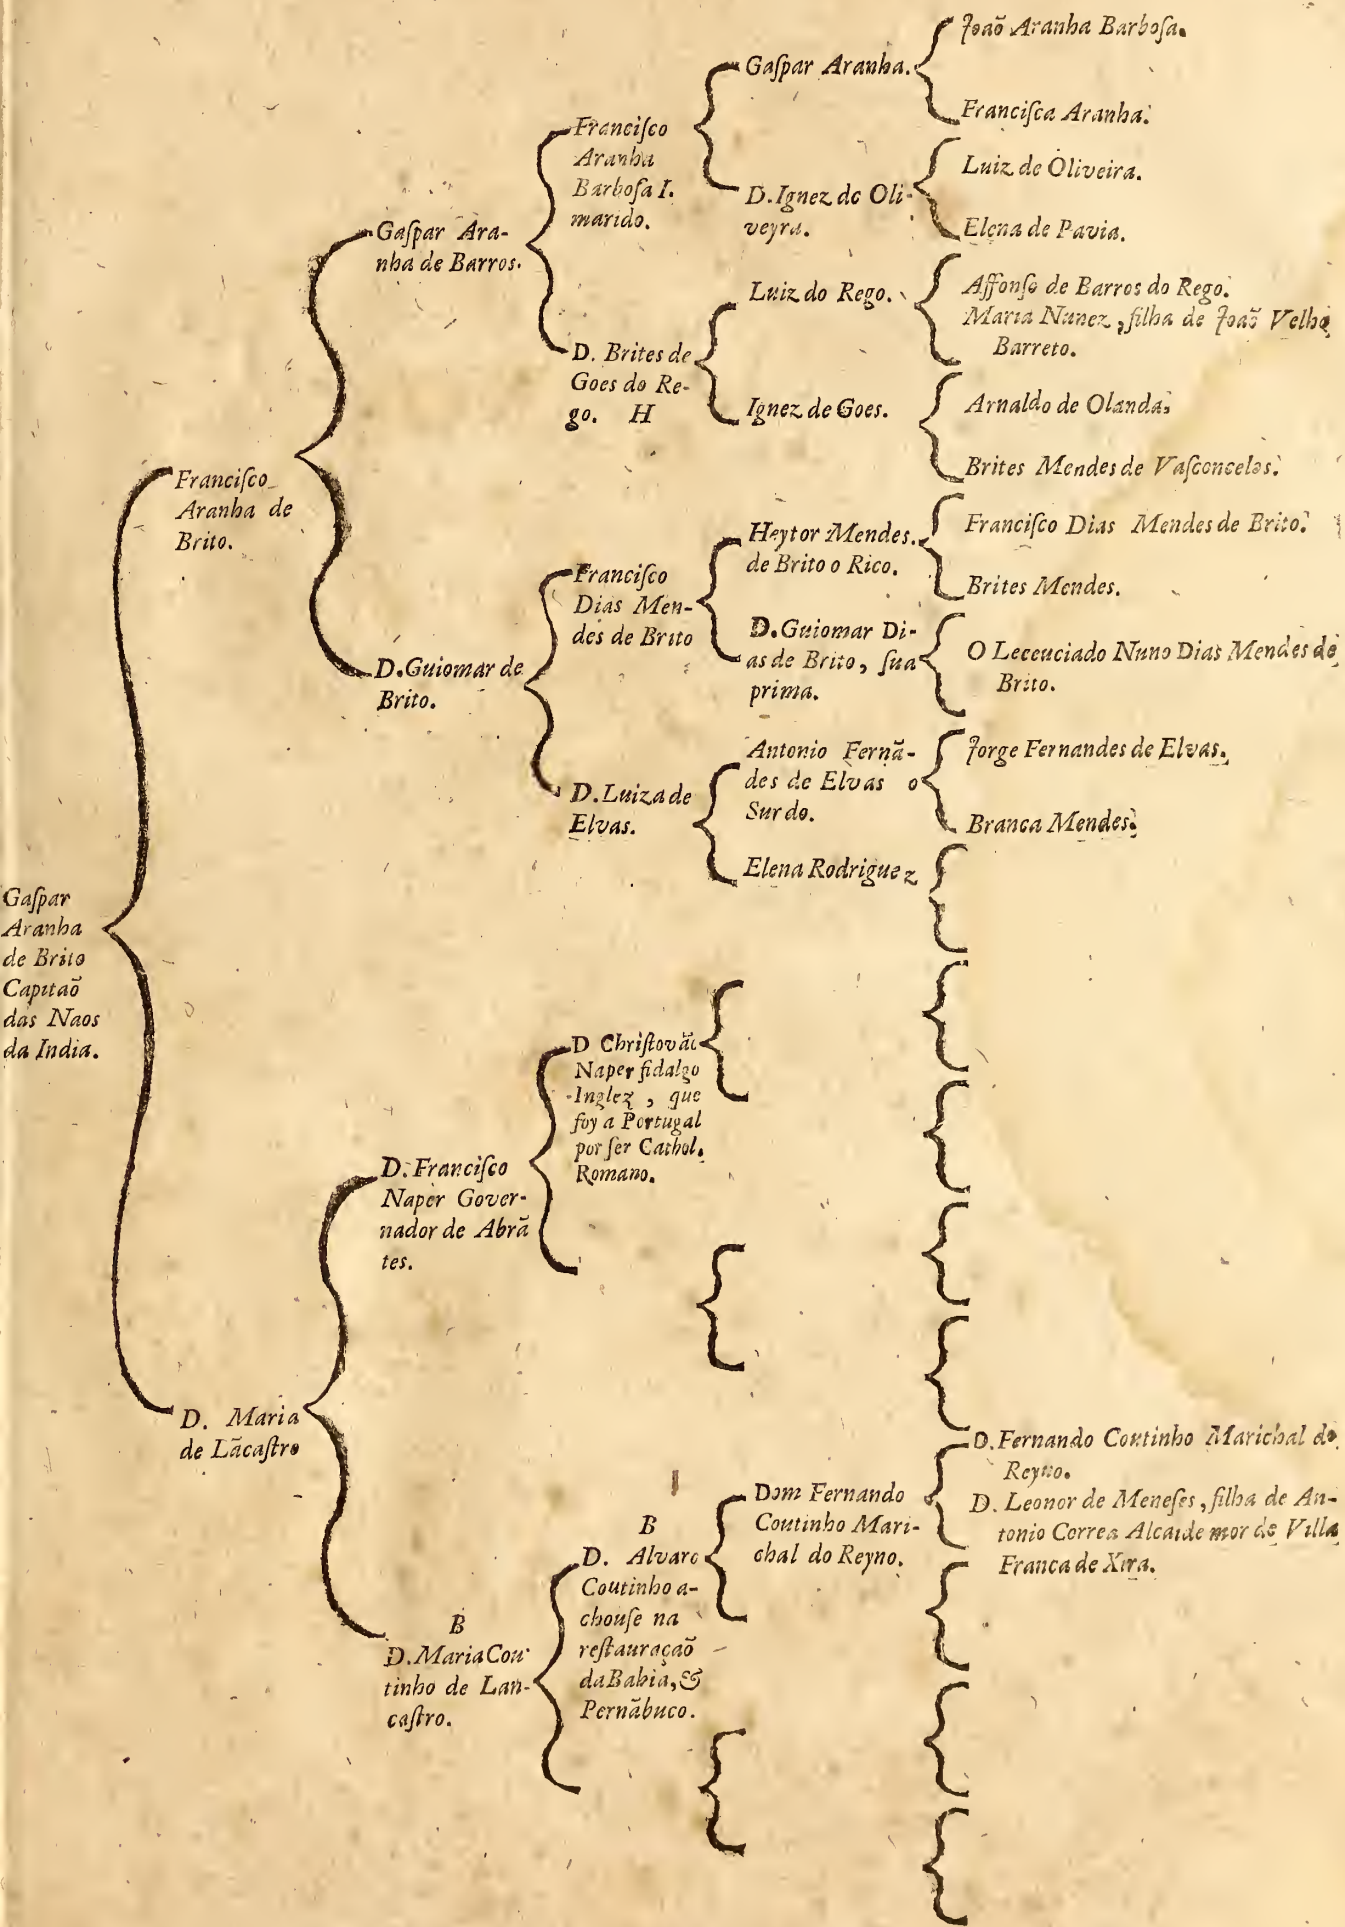 Gaſpar
Aranha
de Brito
Capitaõ
das Naos
da India.
Franciſco
Aranha de
Brito.
D. Maria
de Lãcaſtro
Gaſpar Ara-
nha de Barros.
D. Guiomar de
Brito.
D. Franciſco
Naper Gover-
nador de Abrã
tes.
B
D. Maria Cou-
tinho de Lan-
caſtro.
Franciſco
Aranha
Barboſa I.
marido.
D. Brites de
Goes do Re-
go. H
Franciſco
Dias Men-
des de Brito
D. Luiza de
Elvas.
D Chriſtovaõ
Naper fidalgo
Inglez, que
foy a Portugal
por ſer Cathol.
Romano.
B
D. Alvaro
Coutinho a-
chouſe na
reſtauraçaõ
da Bahia, &
Pernãbuco.
Gaſpar Aranha.
D. Ignez de Oli-
veyra.
Luiz do Rego.
Ignez de Goes.
Heytor Mendes.
de Brito o Rico.
D. Guiomar Di-
as de Brito, ſua
prima.
Antonio Fernã-
des de Elvas o
Surdo.
Elena Rodriguez
Dom Fernando
Coutinho Mari-
chal do Reyno.
Joaõ Aranha Barboſa.
Franciſca Aranha.
Luiz de Oliveira.
Elena de Pavia.
Affonſo de Barros do Rego.
Maria Nunez, filha de Joaõ Velho
Barreto.
Arnaldo de Olanda.
Brites Mendes de Vaſconcelos.
Franciſco Dias Mendes de Brito.
Brites Mendes.
O Lecenciado Nuno Dias Mendes de
Brito.
Jorge Fernandes de Elvas.
Branca Mendes.
D. Fernando Coutinho Marichal do
Reyno.
D. Leonor de Meneſes, filha de An-
tonio Correa Alcaide mor de Villa
Franca de Xira.